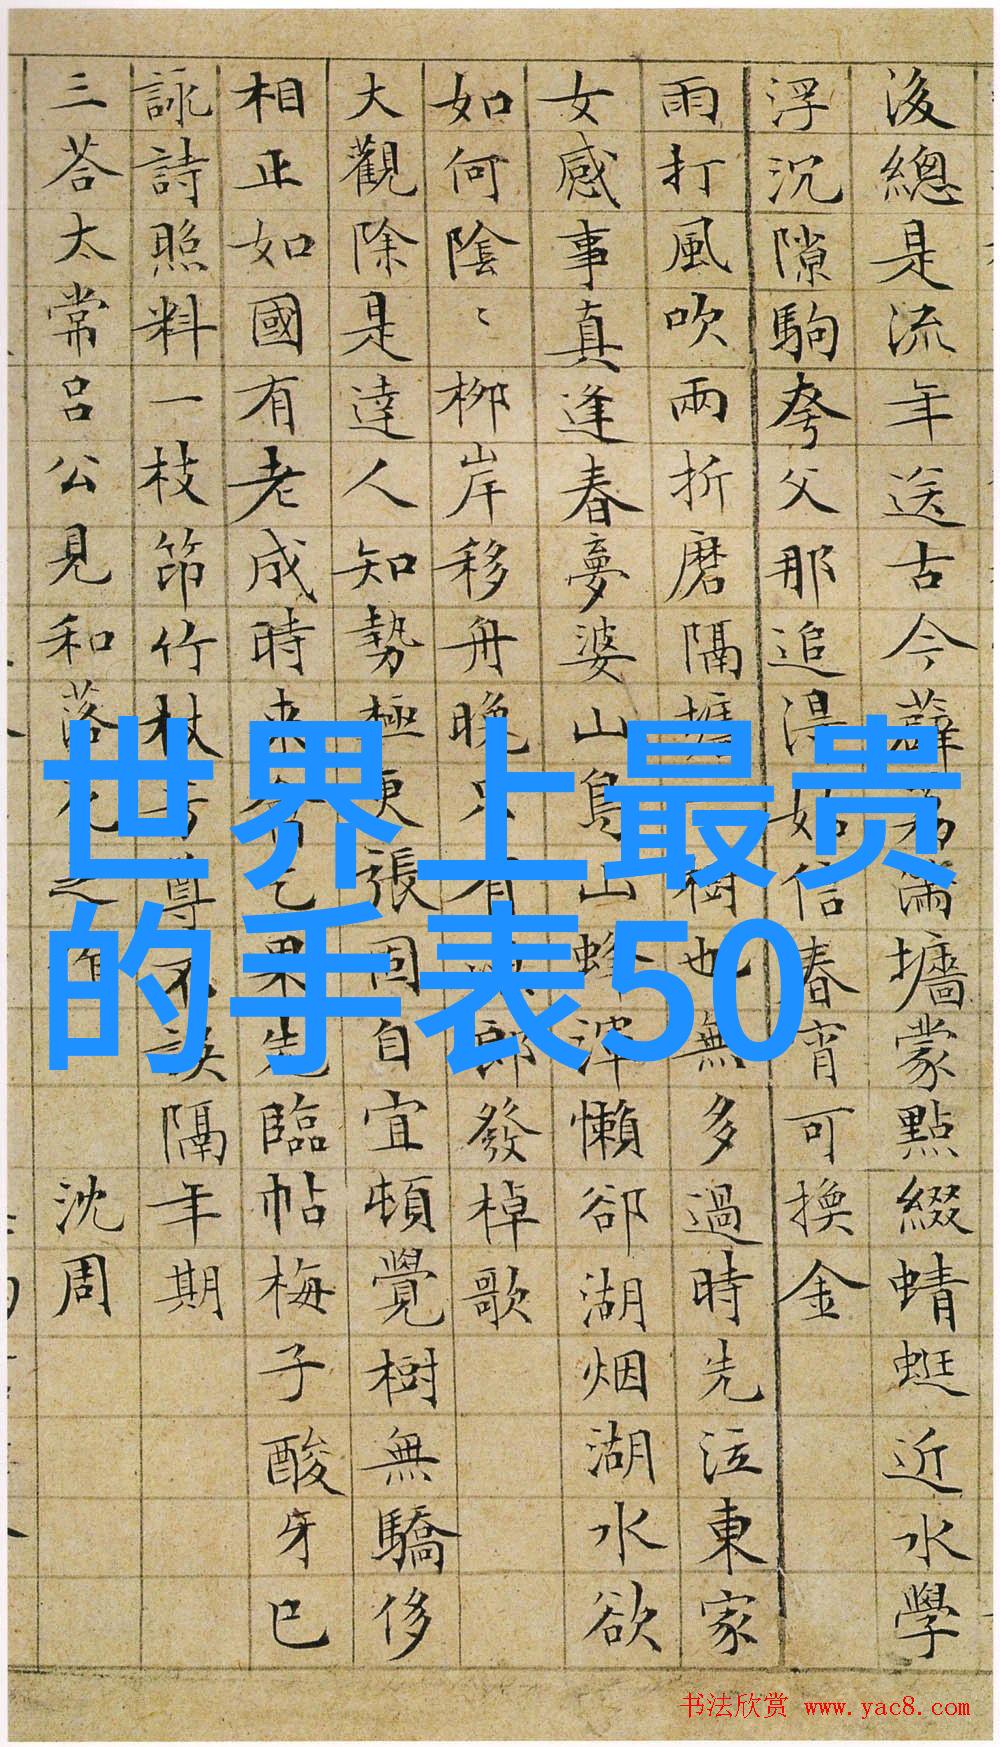 後總是流年送古今薜荔滿墻蒙點綴蜻蜓近水學
浮沉隙駒夸父那追得如信春宵可換金
雨打風吹兩折磨隔墻樹也無多過時先泣東家
女感事真逢春夢婆山鳥山蜂渾懶卻湖烟湖水欲
如何陰〻柳岸移舟晚只有郎發棹歌
大觀除是達人知勢極更張固自宜頓覺樹無驕侈
相正如國有老成時来果先臨帖梅子酸牙已
詠詩照料一枝笻竹杖芳尊不誤隔年期
三荅太常呂公見和落花之作 沈周
世界上最贵
的手表50
书法欣赏 www.yac8.com